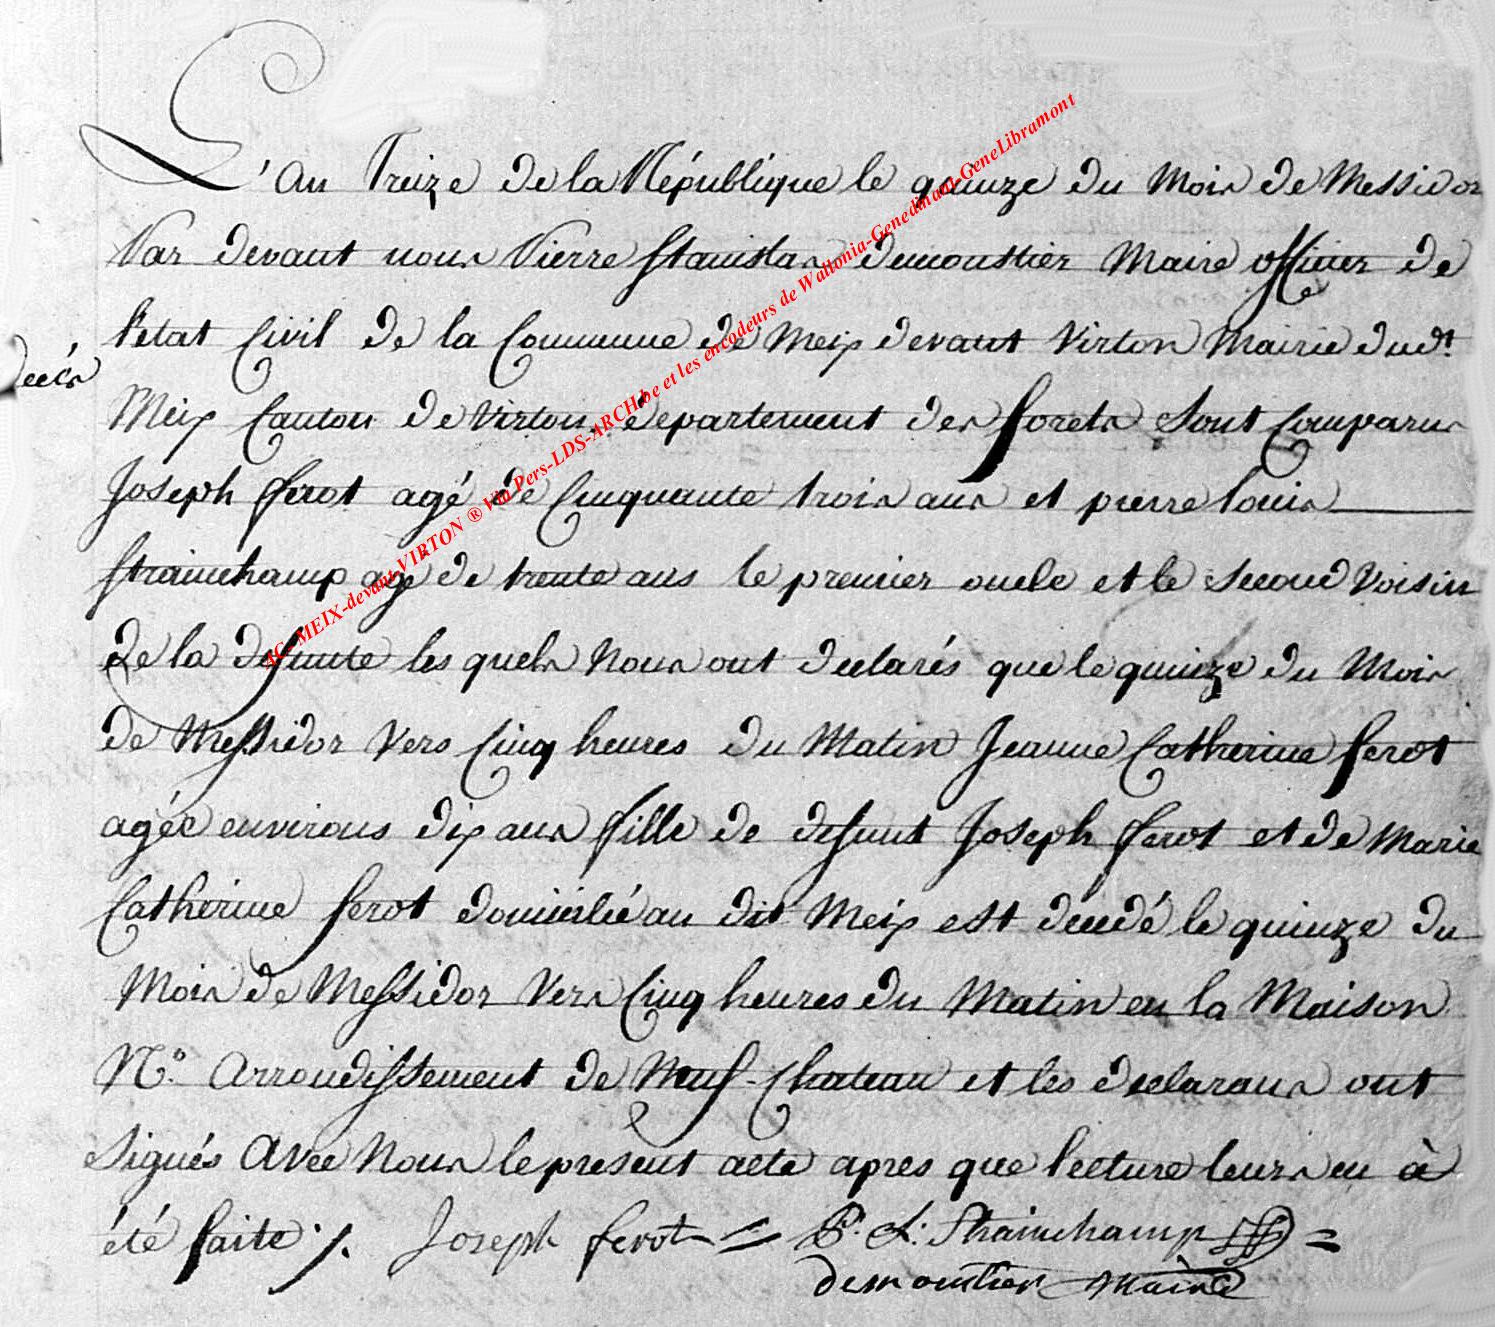 L'an Treize de la République le quinze du Mois de Messidor
Par devant nous Pierre Stanislas demoustier Maire officier de
l'etat Civil de la Commune de Meix devant Virton Mairie dud.t
decés
Meix Canton de Virton, departement des forets Sont Comparus
Joseph ferot agé de Cinquante trois ans et pierre louis
Strainchamp agé de trente ans le premier oncle et le second Voisin
de la defunte les quels Nous ont declarés que le quinze du Mois
de Messidor Vers Cinq heures du Matin Jeanne Catherine ferot
agée environs dix ans fille de defunt Joseph ferot et de Marie
Catherine ferot domicilié au dit Meix est decedé le quinze du
Mois de Messidor Vers Cinq heures du Matin en la Maison
N.o Arrondissement de Neuf-Chateau et les declarans ont
signés Avec Nous le present acte apres que lecture leurs en à
été faite ./. Joseph ferot = P. L. Strainchamp =
demoustier Maire
AC-MEIX-devant-VIRTON ® Via Pers-LDS-ARCH.be et les encodeurs de Wallonia-Genedinant-GeneLibramont